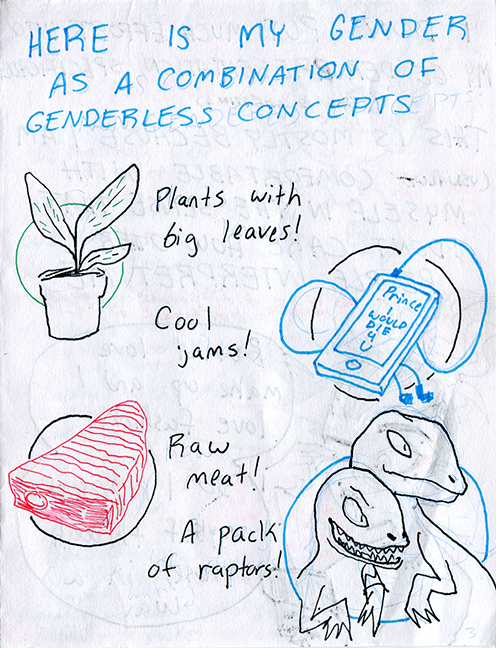 HERE IS MY GENDER
AS A COMBINATION OF
GENDERLESS CONCEPTS
Plants with
big leaves!
Cool
jams!
Prince
I
WOULD
DIE
4
U
Raw
meat!
A pack
of raptors!
3